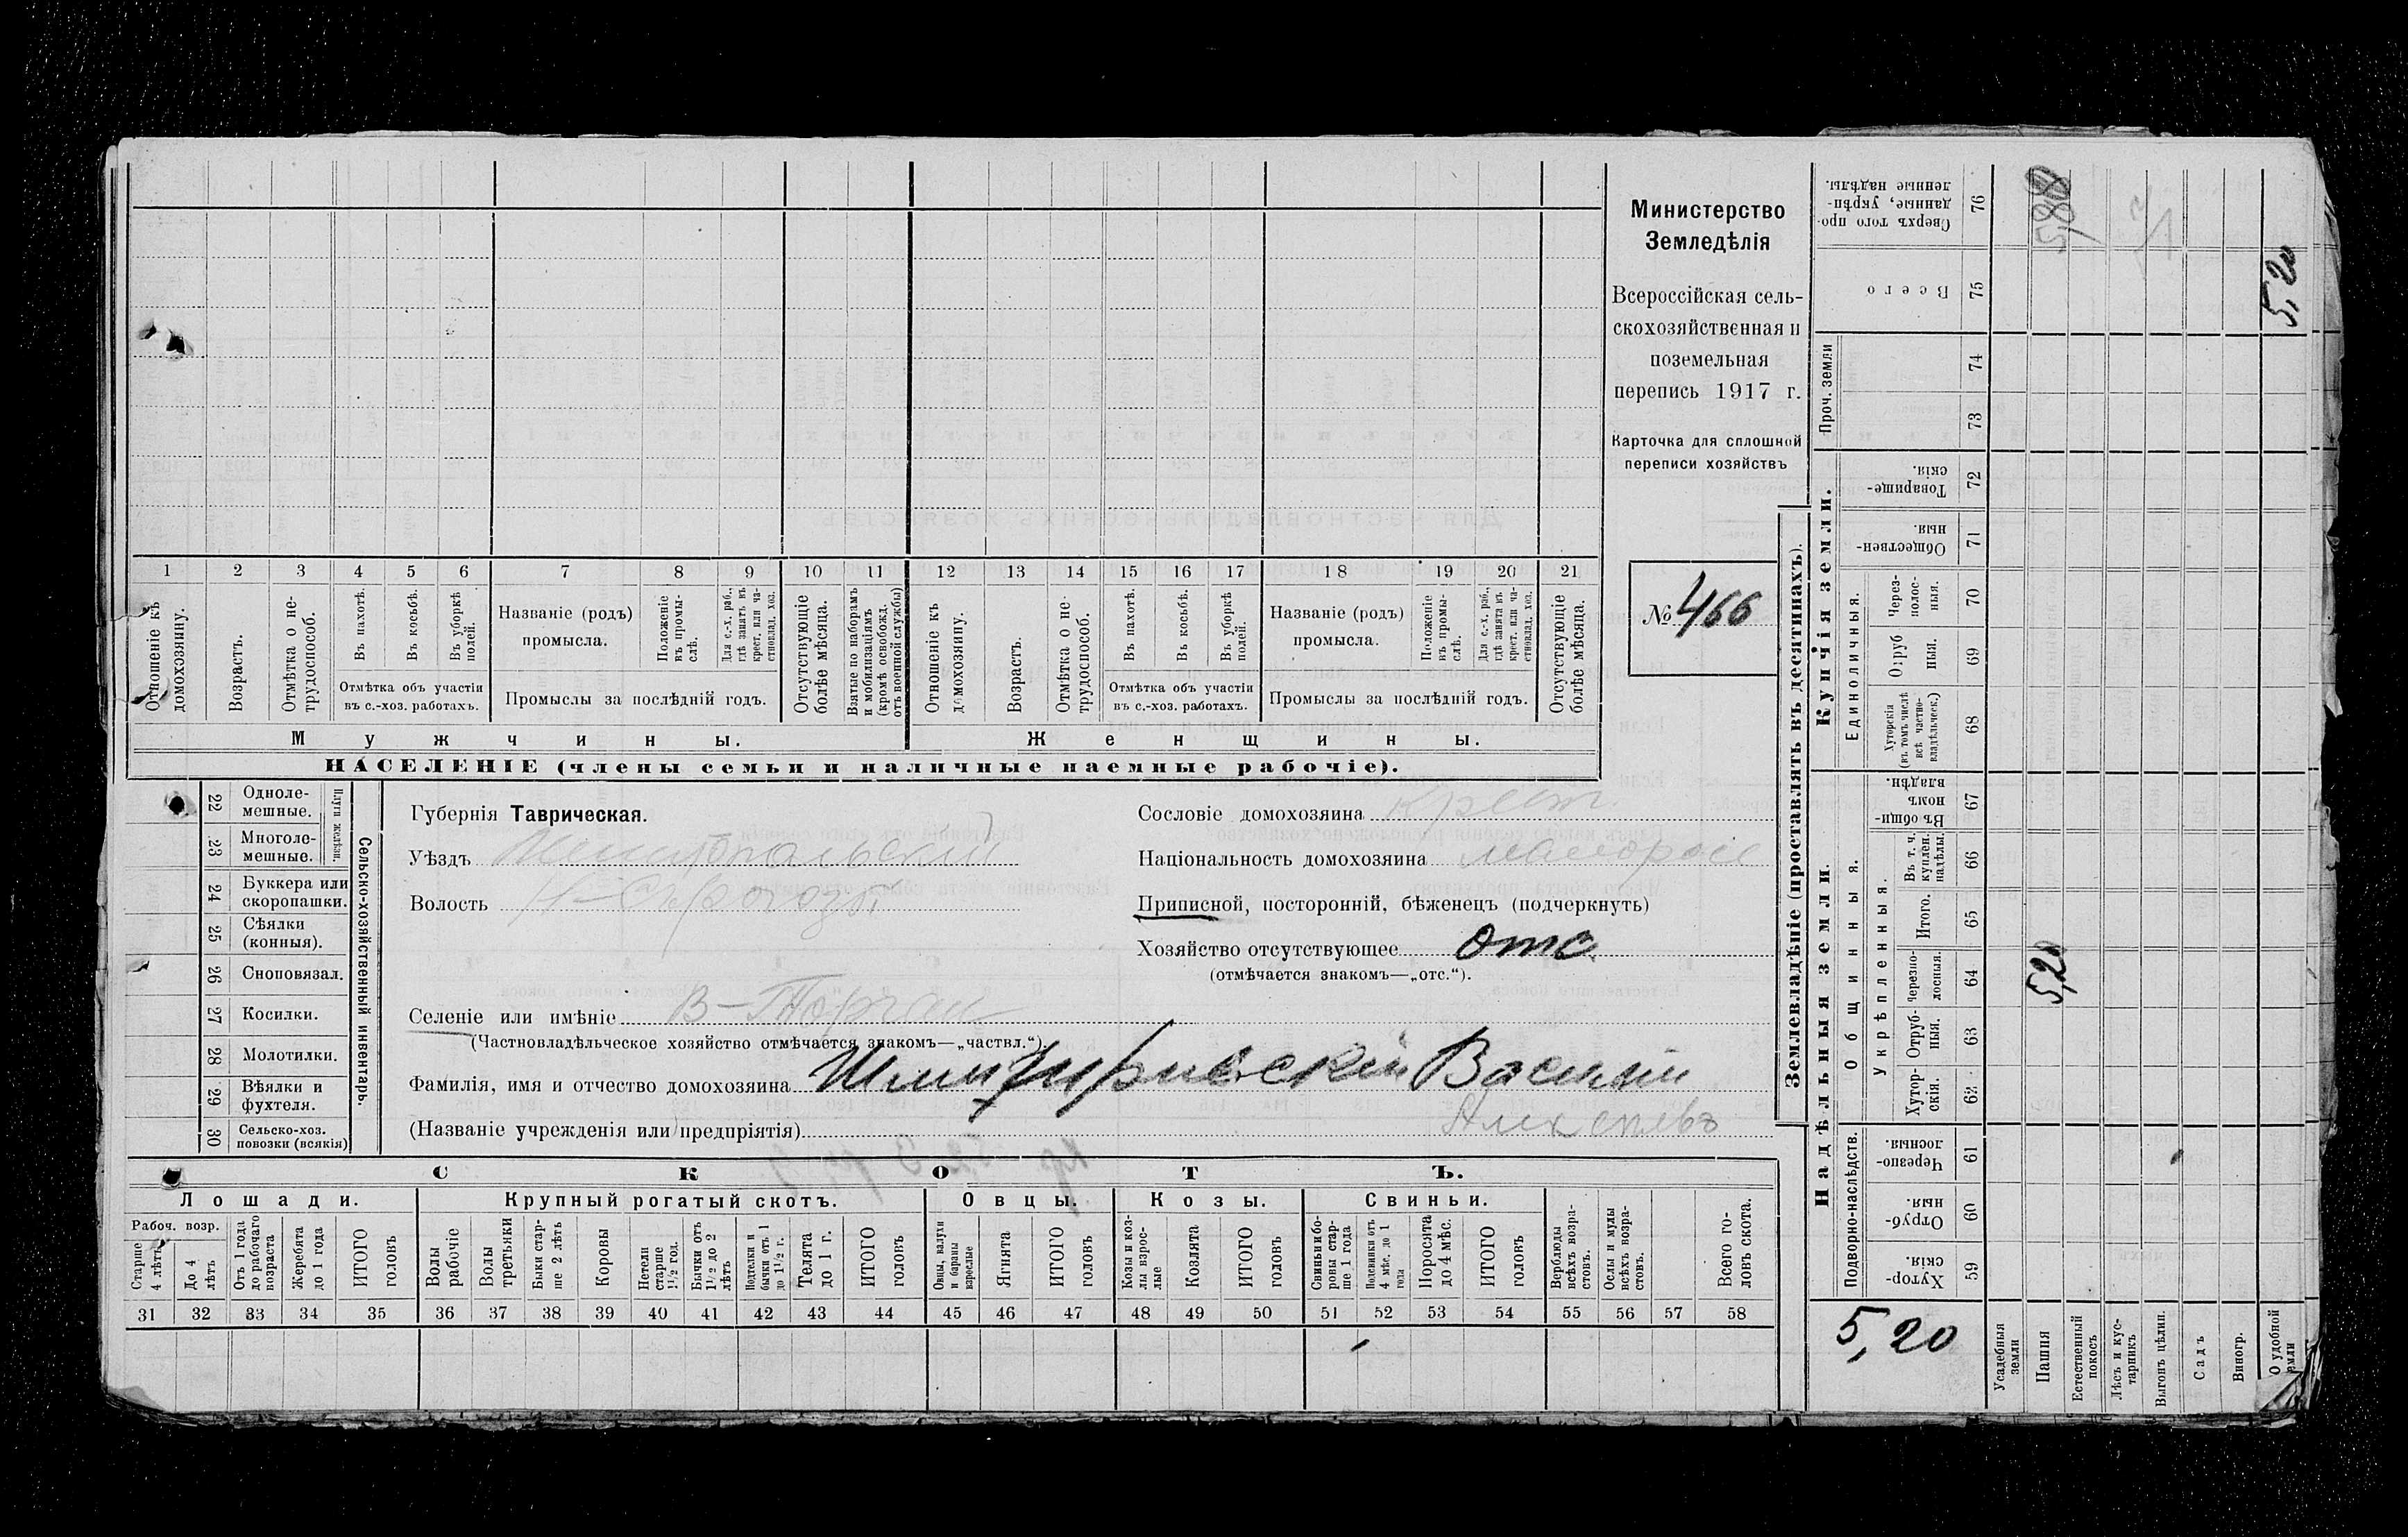 Министерство
Земледѣлія
Всероссійская сель-
скохозяйственная и
поземельная
перепись 1917 г.
Карточка для сплошной
переписи хозяйствъ
№ 466
1 2 3 4 5 6 7 8 9 10 11 12 13 14 15 16 17 18 19 20 21
Отношеніе къ домохозяину.
Возрастъ.
Отмѣтка о не-трудоспособ.
Въ пахотѣ.
Въ косьбѣ.
Въ уборкѣ полей.
Отмѣтка объ участіи въ с.-хоз. работахъ.
Названіе (родъ) промысла.
Положеніе въ промы-слѣ.
Для с.-х. раб., гдѣ занятъ въ крест. или ча-стновлад. хоз.
Промыслы за послѣдній годъ.
Отсутствующіе болѣе мѣсяца.
Взятые по наборамъ и мобилизаціямъ (кромѣ освобожд. отъ военной службы)
Отношеніе къ домохозяину.
Возрастъ.
Отмѣтка о не-трудоспособ.
Въ пахотѣ.
Въ косьбѣ.
Въ уборкѣ полей.
Отмѣтка объ участіи въ с.-хоз. работахъ.
Названіе (родъ) промысла.
Положеніе въ промы-слѣ.
Для с.-х. раб., гдѣ занята въ крест. или ча-стновлад. хоз.
Промыслы за послѣдній годъ.
Отсутствующіе болѣе мѣсяца.
Мужчины.
Женщины.
НАСЕЛЕНІЕ (члены семьи и наличные наемные рабочіе).
22 Одноле-мешные.
23 Многоле-мешные.
Плуги желѣзн.
24 Буккера или скоропашки.
25 Сѣялки (конныя).
26 Сноповязал.
27 Косилки.
28 Молотилки.
29 Вѣялки и фухтеля.
30 Сельско-хоз. повозки (всякія)
Сельско-хозяйственный инвентарь.
Губернія Таврическая.
Уѣздъ Мелитопальскій
Волость Н-Сѣрогозы
Сословіе домохозяина Крест
Національность домохозяина малоросс
Приписной, посторонній, бѣженецъ (подчеркнуть)
Хозяйство отсутствующее отс.
(отмѣчается знакомъ—„отс.“).
Селеніе или имѣніе В-Торгаи
(Частновладѣльческое хозяйство отмѣчается знакомъ—„частвл.“).
Фамилія, имя и отчество домохозяина Василій
Алексѣевъ
(Названіе учрежденія или предпріятія)
СКОТЪ.
Лошади.
Крупный рогатый скотъ.
Овцы.
Козы.
Свиньи.
Рабоч. возр.
Старше 4 лѣтъ
До 4 лѣтъ
Отъ 1 года до рабочаго возраста
Жеребята до 1 года
ИТОГО головъ
Волы рабочіе
Волы третьяки
Быки стар-ше 2 лѣтъ
Коровы
Нетели старше 1½ год.
Бычки отъ 1½ до 2 лѣтъ
Подтелки и бычки отъ 1 до 1½ г.
Телята до 1 г.
ИТОГО головъ
Овцы, валухи и бараны взрослые
Ягнята
ИТОГО головъ
Козы и коз-лы взрос-лые
Козлята
ИТОГО головъ
Свиньи бо-ровы стар-ше 1 года
Подсвинки отъ 4 мѣс. до 1 года
Поросята до 4 мѣс.
ИТОГО головъ
Верблюды всѣхъ возра-стовъ.
Ослы и мулы всѣхъ возра-стовъ.
Всего го-ловъ скота.
31 32 33 34 35 36 37 38 39 40 41 42 43 44 45 46 47 48 49 50 51 52 53 54 55 56 57 58
Землевладѣніе (проставлять въ десятинахъ).
Купчія земли.
Надѣльныя земли.
Сверхъ того про-данные, укрѣп-ленные надѣлы. 76
Всего 75
Проч. земли 74 73
Товарище-скія. 72
Обществен-ныя. 71
Единоличныя.
Через-полос-ныя. 70
Отруб-ныя. 69
Хуторскія (въ томъ числѣ всѣ частно-владѣльческ.) 68
Общинныя.
Въ общи-номъ владѣн. 67
Укрѣпленныя.
Въ т. ч. куплен. надѣлы. 66
Итого. 65
Черезпо-лосныя. 64
Отруб-ныя. 63
Хутор-скія. 62
Подворно-наслѣдств.
Черезпо-лосныя. 61
Отруб-ныя. 60
Хутор-скія. 59
5,20
Усадебныя земли
Пашня
Естественный покосъ
Лѣсъ и кус-тарникъ
Выгонъ цѣлин.
Садъ
Виногр.
О удобной земли
5,88
5,20
5,20